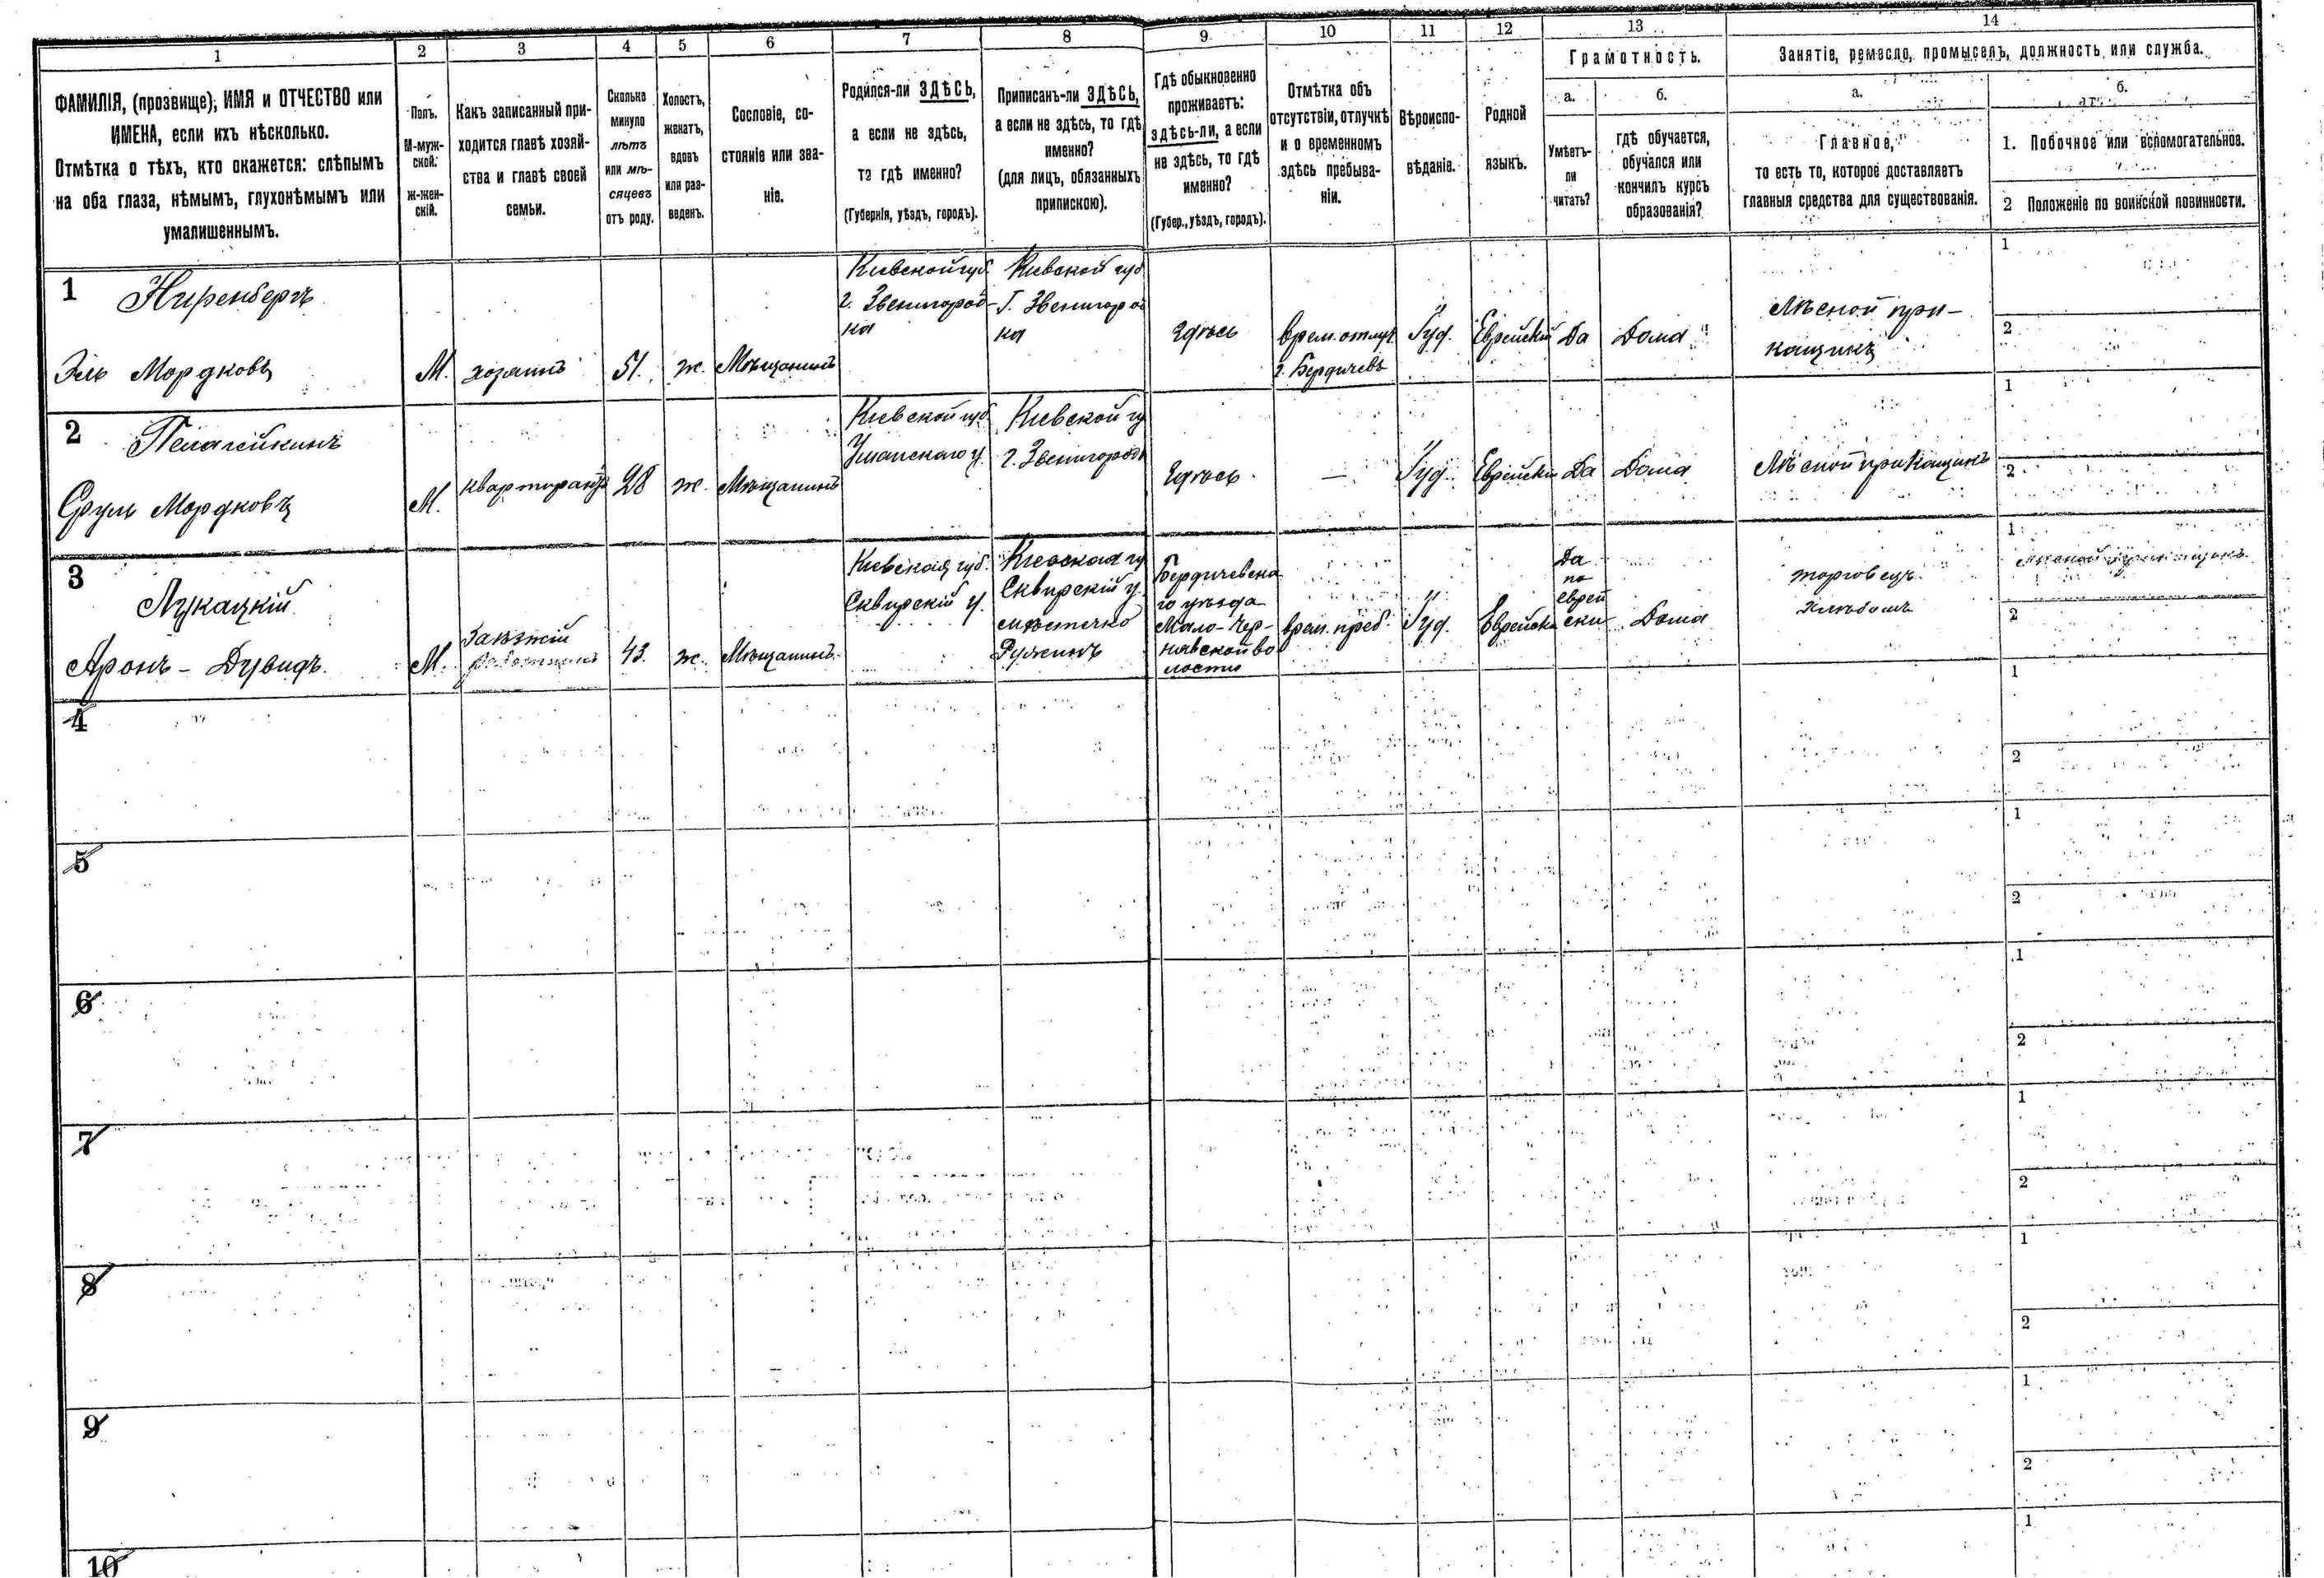 1 2 3 4 5 6 7 8 9 10 11 12 13 14
ФАМИЛІЯ, (прозвище), ИМЯ и ОТЧЕСТВО или
ИМЕНА, если ихъ нѣсколько.
Отмѣтка о тѣхъ, кто окажется: слѣпымъ
на оба глаза, нѣмымъ, глухонѣмымъ или
умалишеннымъ.
Полъ.
М-муж-
ской.
ж-жен-
скій.
Какъ записанный при-
ходится главѣ хозяй-
ства и главѣ своей
семьи.
Сколько
минуло
лѣтъ
или мѣ-
сяцевъ
отъ роду.
Холостъ,
женатъ,
вдовъ
или раз-
веденъ.
Сословіе, со-
стояніе или зва-
ніе.
Родился-ли ЗДѢСЬ,
а если не здѣсь,
то гдѣ именно?
(Губернія, уѣздъ, городъ).
Приписанъ-ли ЗДѢСЬ,
а если не здѣсь, то гдѣ
именно?
(для лицъ, обязанныхъ
припискою).
Гдѣ обыкновенно
проживаетъ:
здѣсь-ли, а если
не здѣсь, то гдѣ
именно?
(Губер., уѣздъ, городъ).
Отмѣтка объ
отсутствіи, отлучкѣ
и о временномъ
здѣсь пребыва-
ніи.
Вѣроиспо-
вѣданіе.
Родной
языкъ.
Грамотность.
а.
Умѣетъ-
ли
читать?
б.
гдѣ обучается,
обучался или
кончилъ курсъ
образованія?
Занятіе, ремесло, промыселъ, должность или служба.
а.
Главное,
то есть то, которое доставляетъ
главныя средства для существованія.
б.
1. Побочное или вспомогательное.
2 Положеніе по воинской повинности.
1
Ниренбергъ
Эль Мордковъ
М.
хозяинъ
51.
ж.
Мѣщанинъ
Кіевской губ.
г. Звенигород-
ка
Кіевской губ
г. Звенигород
ка
здѣсь
врем. отлуч
г. Бердичевъ
Іуд.
Еврейскій
Да
Дома
Лѣсной при-
кащикъ
1
2
2
Пелагейкинъ
Сруль Мордковъ
М.
квартирантъ
28
ж.
Мѣщанинъ
Кіевской губ.
Уманскаго у.
Кіевской гу
г. Звенигородк
здѣсь
—
Іуд.
Еврейскій
Да
Дома
Лѣсной прикащикъ
1
2
3
Лукацкій
Аронъ - Дувидъ.
М.
Заѣзжій
43.
ж.
Мѣщанинъ.
Кіевская губ.
Сквирскій у.
Кіевская гу
Сквирскій у.
мѣстечко
Ружинъ
Бердичевска
го уѣзда
Мало-Чер-
нявской во
лости
врем. преб.
Іуд.
Еврейск
Да
по
еврей
ски
Дома
торговецъ
хлѣбомъ
1
2
4
1
2
5
1
2
6
1
2
7
1
2
8
1
2
9
1
2
10
1